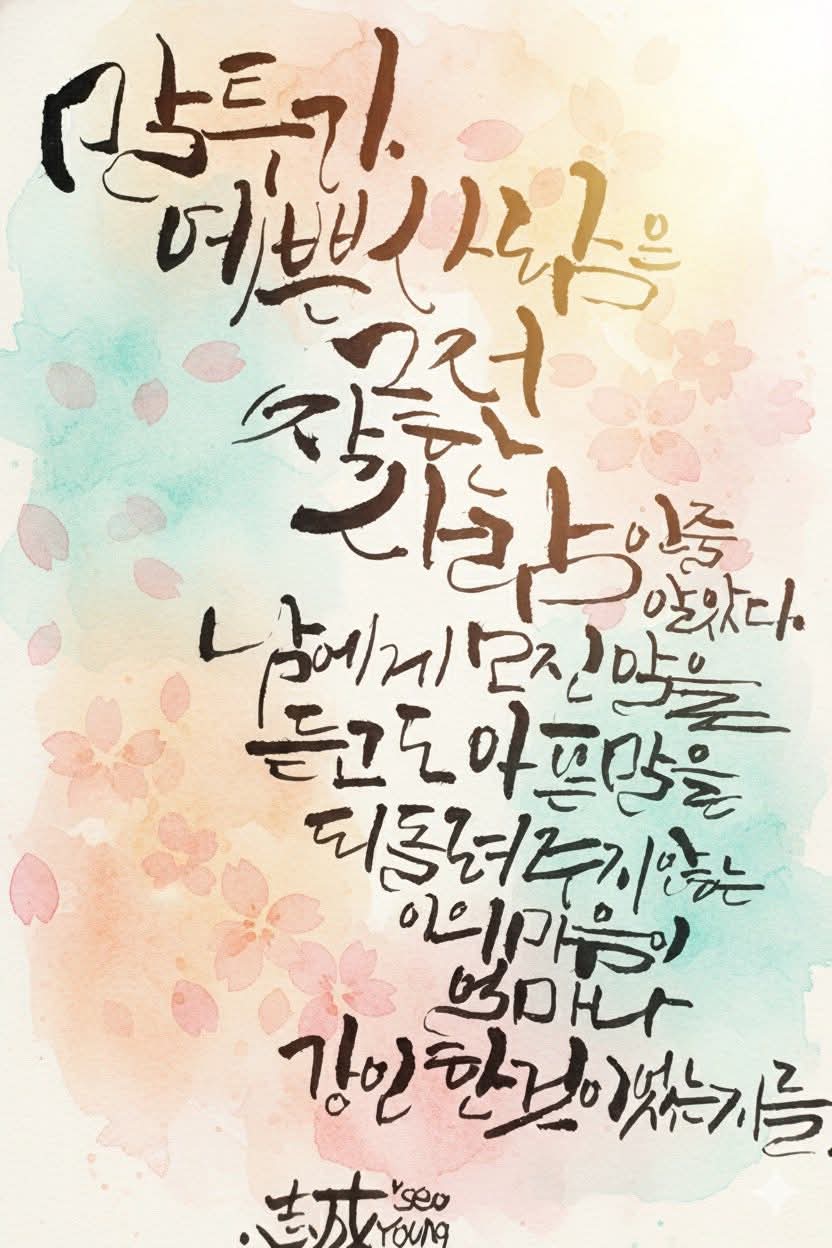 말투가.
예쁜 사람은
그저
착한
사람인줄
알았다.
남에게 모진 말을
듣고도 아픈말을
되돌려주지 않는
이의 마음이
얼마나
강인한 것이었는지를.
志成 seo
young